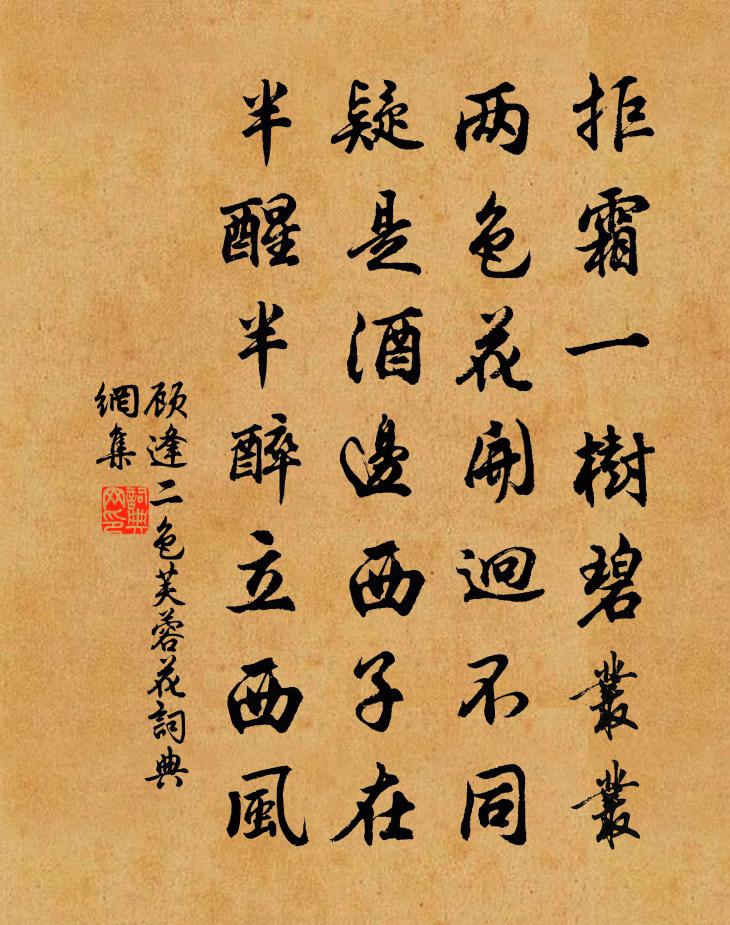 拒霜一樹碧叢叢
两色花開迥不同
疑是酒邊西子在
半醒半醉立西風
顾逢二色芙蓉花詞典
網集
詞典网印